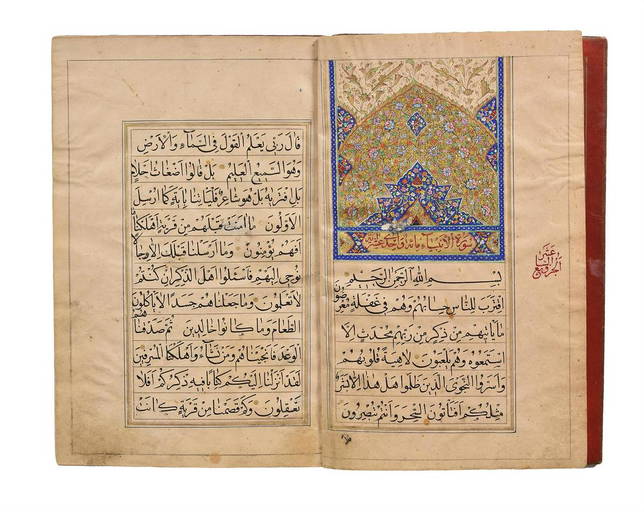 سورة الانبياء مائة واحدى عشر
بسم الله الرحمن الرحيم
اقترب للناس حسابهم وهم في غفلة معرضون
ما ياتيهم من ذكر من ربهم محدث الا
استمعوه وهم يلعبون لاهية قلوبهم
واسروا النجوى الذين ظلموا هل هذا الا بشر
مثلكم افتاتون السحر وانتم تبصرون
عشر
قال ربي يعلم القول في السماء والارض
وهو السميع العليم بل قالوا اضغاث احلام
بل افتريه بل هو شاعر فلياتنا باية كما ارسل
الاولون ما امنت قبلهم من قرية اهلكناها
افهم يؤمنون وما ارسلنا قبلك الا رجالا
نوحي اليهم فاسئلوا اهل الذكر ان كنتم
لا تعلمون وما جعلناهم جسدا لا ياكلون
الطعام وما كانوا خالدين ثم صدقناهم
الوعد فانجيناهم ومن نشاء واهلكنا المسرفين
لقد انزلنا اليكم كتابا فيه ذكركم افلا
تعقلون وكم قصمنا من قرية كانت